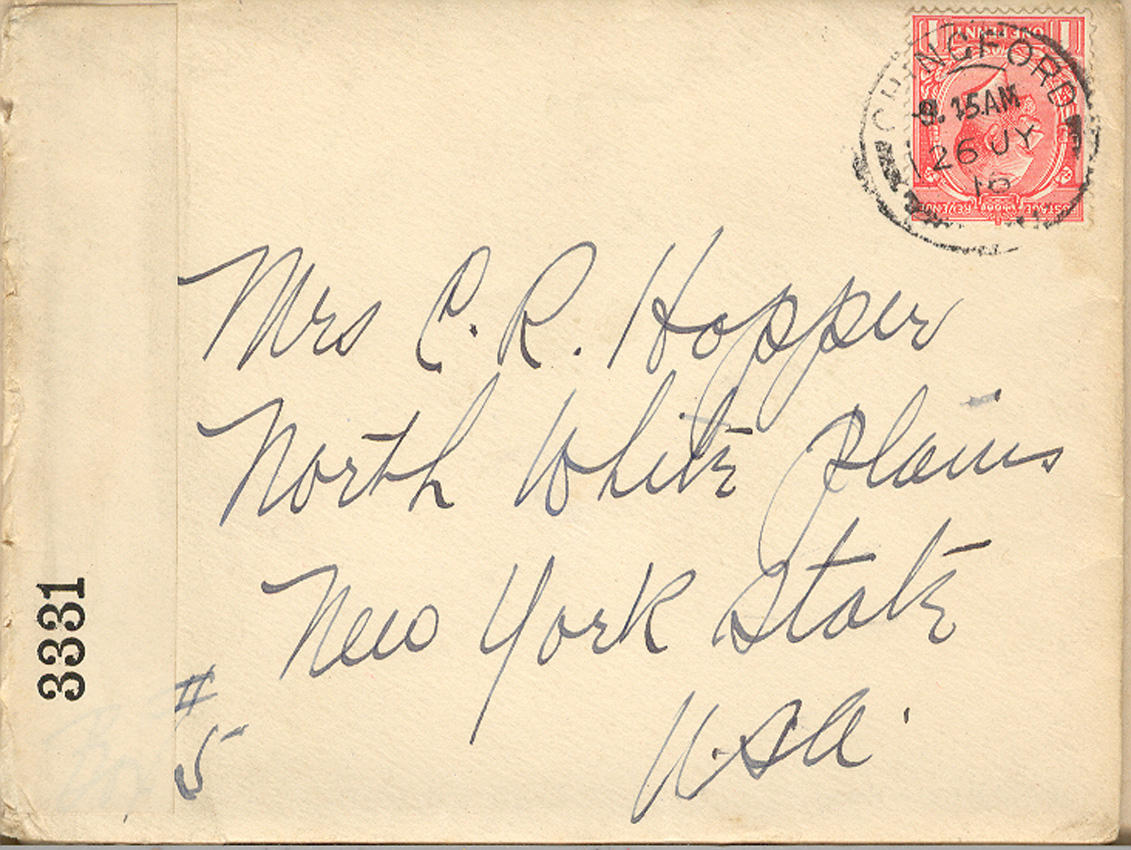 CHINGFORD
9. 15AM
26 JY
1 ONE PENNY 1
POSTAGE REVENUE
Mrs C. R. Hopper
North White Plains
New York State
U.S.A.
#
5
3331